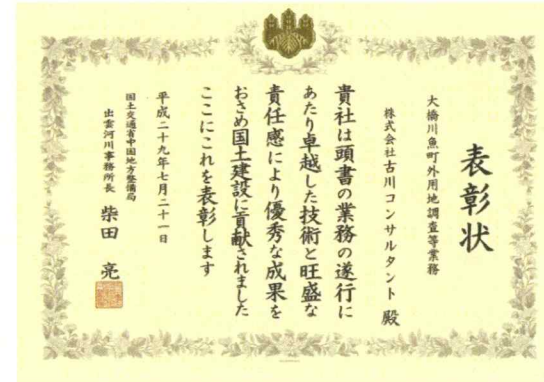 表彰状
大橋川魚町外用地調査等業務
株式会社古川コンサルタント 殿
貴社は頭書の業務の遂行に
あたり卓越した技術と旺盛な
責任感により優秀な成果を
おさめ国土建設に貢献されました
ここにこれを表彰します
平成二十九年七月二十一日
国土交通省中国地方整備局
出雲河川事務所長 柴田 亮